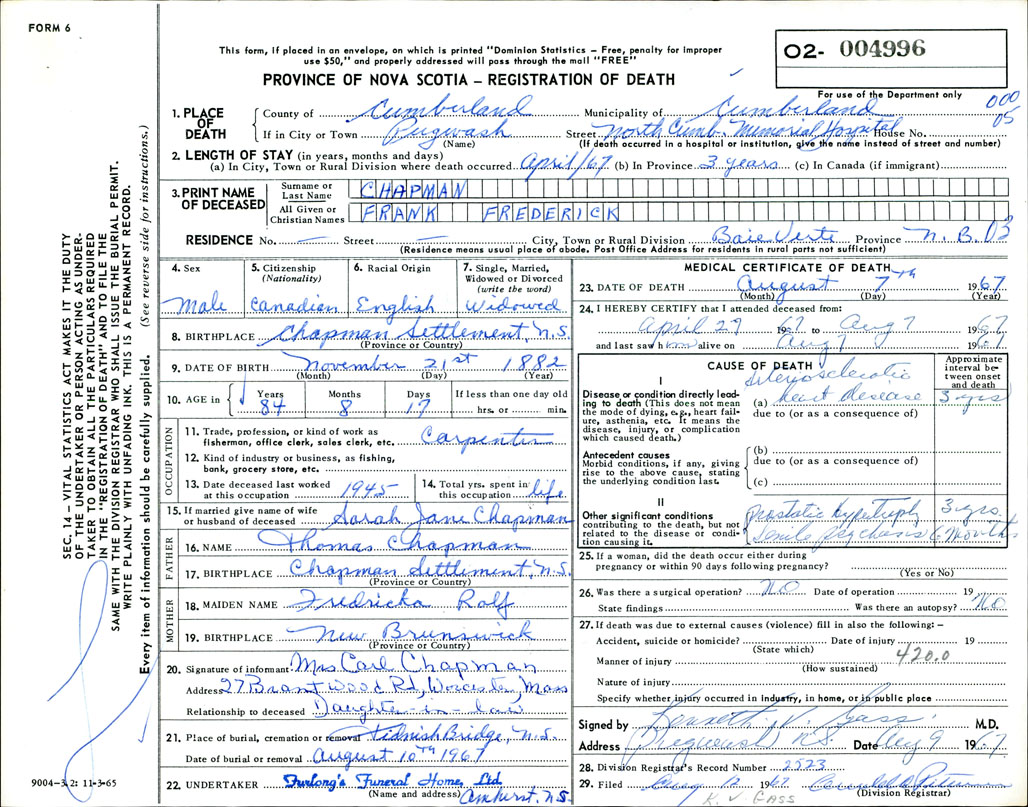 FORM 6
This form, if placed in an envelope, on which is printed "Dominion Statistics – Free, penalty for improper
use $50," and properly addressed will pass through the mail "FREE"
PROVINCE OF NOVA SCOTIA – REGISTRATION OF DEATH
02- 004996
For use of the Department only
000
05
SEC. 14 – VITAL STATISTICS ACT MAKES IT THE DUTY
OF THE UNDERTAKER OR PERSON ACTING AS UNDER-
TAKER TO OBTAIN ALL THE PARTICULARS REQUIRED
IN THE "REGISTRATION OF DEATH" AND TO FILE THE
SAME WITH THE DIVISION REGISTRAR WHO SHALL ISSUE THE BURIAL PERMIT.
WRITE PLAINLY WITH UNFADING INK. THIS IS A PERMANENT RECORD.
Every item of information should be carefully supplied. (See reverse side for instructions.)
1. PLACE OF DEATH County of Cumberland Municipality of Cumberland
If in City or Town Pugwash Street North Cumb. Memorial Hospital House No.
(Name) (If death occurred in a hospital or institution, give the name instead of street and number)
2. LENGTH OF STAY (in years, months and days)
(a) In City, Town or Rural Division where death occurred April/67 (b) In Province 3 years (c) In Canada (if immigrant)
3. PRINT NAME OF DECEASED Surname or Last Name CHAPMAN
All Given or Christian Names FRANK FREDERICK
RESIDENCE No. — Street — City, Town or Rural Division Baie Verte Province N.B. 03
(Residence means usual place of abode. Post Office Address for residents in rural parts not sufficient)
4. Sex Male
5. Citizenship (Nationality) Canadian
6. Racial Origin English
7. Single, Married, Widowed or Divorced (write the word) Widowed
8. BIRTHPLACE Chapman Settlement, N.S.
(Province or Country)
9. DATE OF BIRTH November 21st 1882
(Month) (Day) (Year)
10. AGE in Years 84 Months 8 Days 17 If less than one day old hrs. or min.
OCCUPATION
11. Trade, profession, or kind of work as fisherman, office clerk, sales clerk, etc. Carpenter
12. Kind of industry or business, as fishing, bank, grocery store, etc.
13. Date deceased last worked at this occupation 1945
14. Total yrs. spent in this occupation life
15. If married give name of wife or husband of deceased Sarah Jane Chapman
FATHER
16. NAME Thomas Chapman
17. BIRTHPLACE Chapman Settlement, N.S.
(Province or Country)
MOTHER
18. MAIDEN NAME Fredricka Rolf
19. BIRTHPLACE New Brunswick
(Province or Country)
20. Signature of informant Mrs Carl Chapman
Address 27 Brantwood Rd, Worcester, Mass
Relationship to deceased Daughter-in-law
21. Place of burial, cremation or removal Tidnish Bridge, N.S.
Date of burial or removal August 10th 1967
22. UNDERTAKER Furlong's Funeral Home, Ltd.
(Name and address) Amherst, N.S.
9004–3.2: 11-3-65
MEDICAL CERTIFICATE OF DEATH
23. DATE OF DEATH August 7th 1967
(Month) (Day) (Year)
24. I HEREBY CERTIFY that I attended deceased from:
April 29 1967 to Aug 7 1967
and last saw him alive on Aug 7 1967
CAUSE OF DEATH
Approximate interval between onset and death
I
Disease or condition directly leading to death (This does not mean the mode of dying, e.g., heart failure, asthenia, etc. It means the disease, injury, or complication which caused death.)
(a) Arteriosclerotic heart disease 3 yrs
due to (or as a consequence of)
Antecedent causes
Morbid conditions, if any, giving rise to the above cause, stating the underlying condition last.
(b)
due to (or as a consequence of)
(c)
II
Other significant conditions contributing to the death, but not related to the disease or condition causing it.
Prostatic hypertrophy 3 yrs.
Senile Psychosis 6 Months
25. If a woman, did the death occur either during
pregnancy or within 90 days following pregnancy?
(Yes or No)
26. Was there a surgical operation? No Date of operation 19
State findings Was there an autopsy? No
27. If death was due to external causes (violence) fill in also the following: –
Accident, suicide or homicide? Date of injury 19
(State which)
420.0
Manner of injury
(How sustained)
Nature of injury
Specify whether injury occurred in industry, in home, or in public place
Signed by Kenneth V. Gass M.D.
Address Pugwash N.S. Date Aug 9 1967
28. Division Registrar's Record Number 2523
29. Filed Aug 12 1967
(Division Registrar)
K V GASS